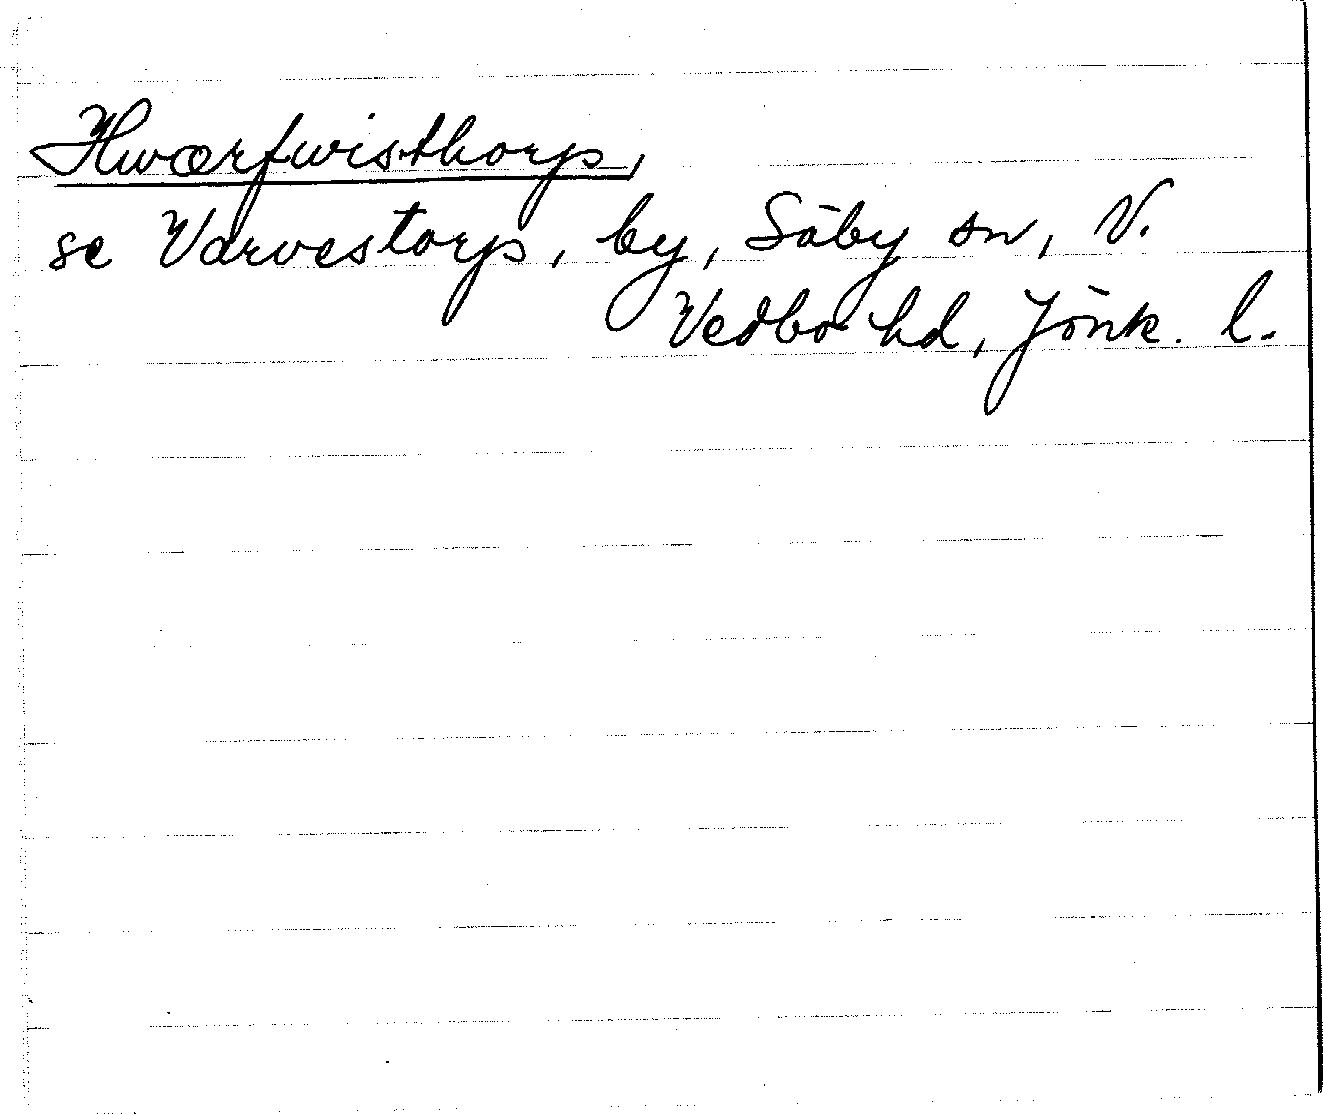 Hwærfwisthorp,
se Varvestorp, by, Säby sn, V.
Vedbo hd, Jönk. l.